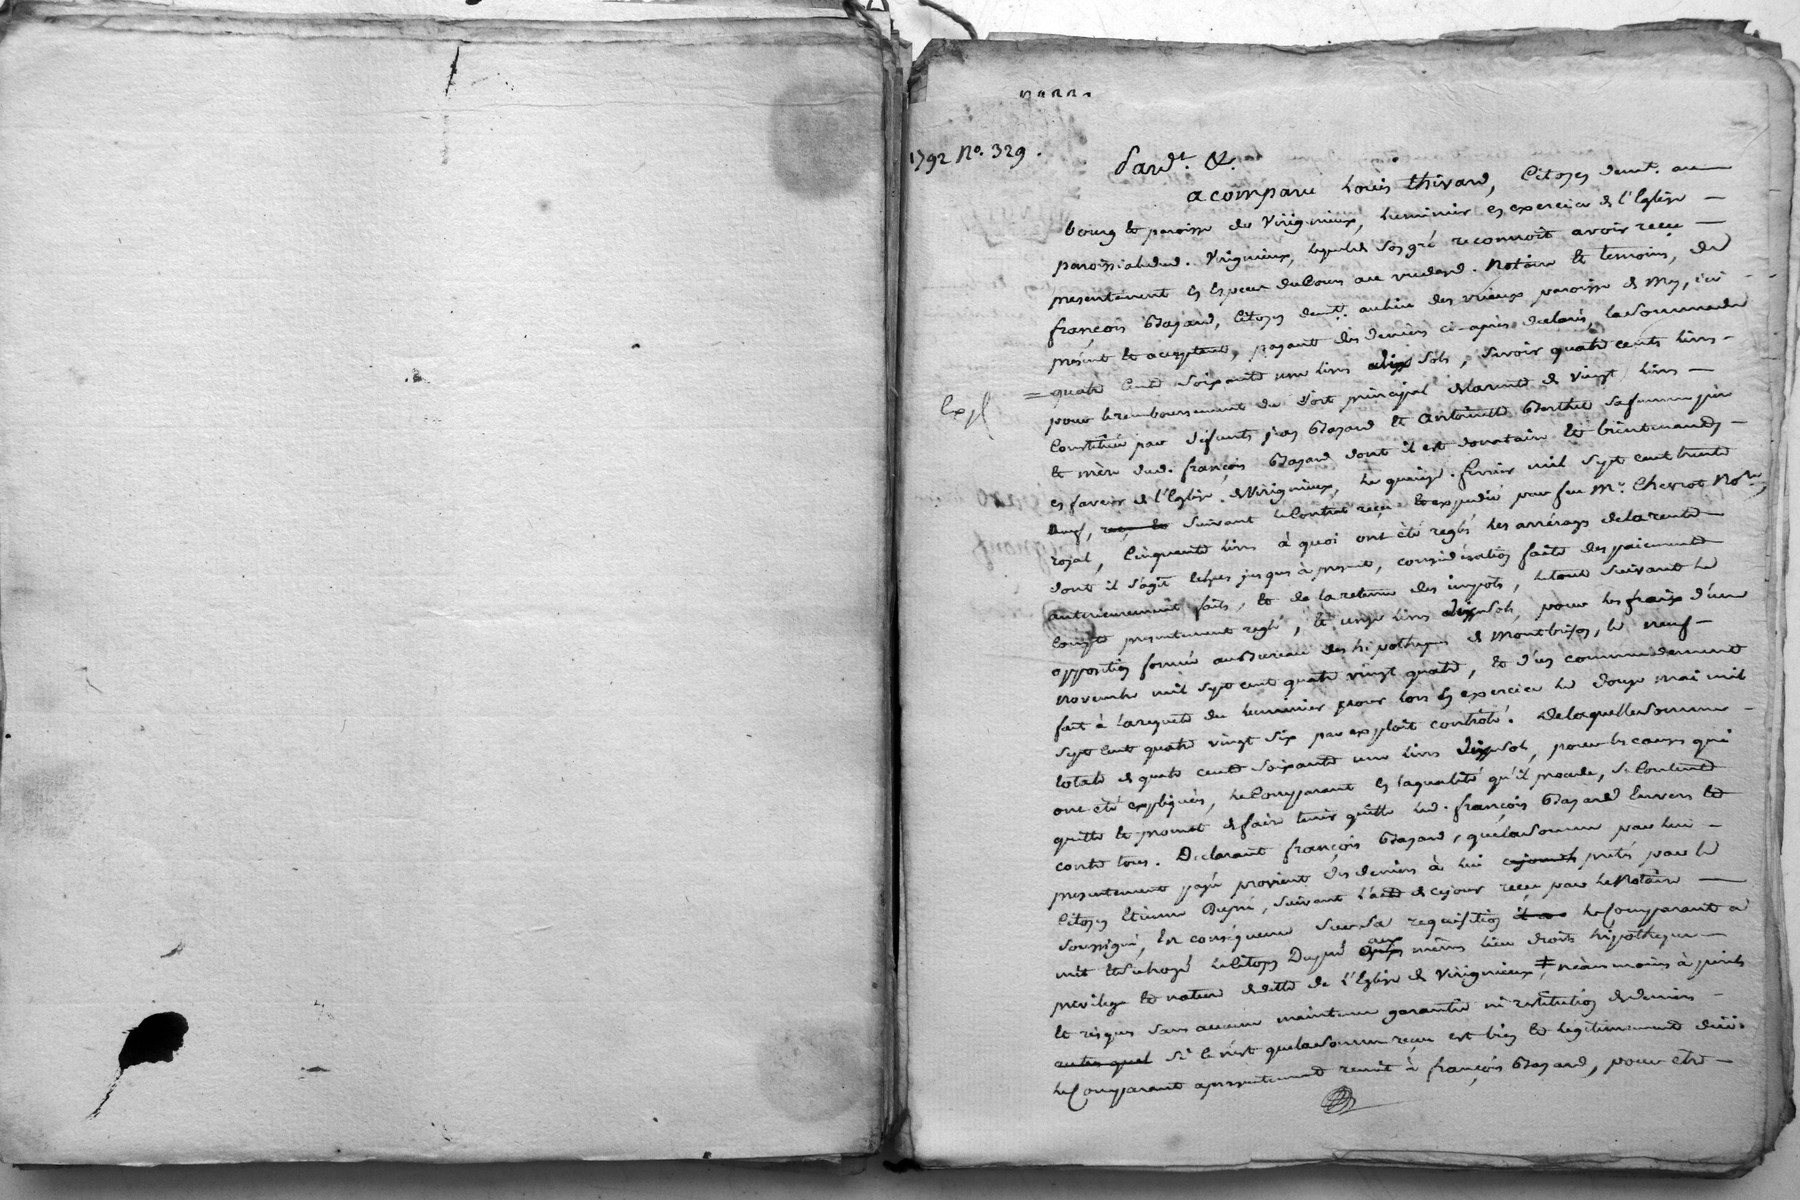 1792 No. 329.
Pardt. &.
a comparu Louis thivard, Citoyen demt. au
bourg et paroisse de Virignieux, luminier en exercice de l'Eglise
paroissiale dud. Virignieux, lequel de son gré reconnoit avoir reçu
presentement en Espece du Cours au vu desd. Notaire et temoins, de
françois Bazard, Citoyen demt. au lieu des vrieux paroisse de Mey, ici
présent et acceptant, payant des deniers ci-après declarés, la somme de
quatre Cents soixante une livres dix sols, savoir quatre cents livres
pour le remboursement du sort principal de la rente de vingt livres
Constituée par défunts jean Bazard et Antoinette Berthet sa femme père
et mère dud. françois Bazard dont il est donataire et bientenant
en faveur de l'Eglise de Virignieux, le quinze février mil sept cent trente
Neuf, suivant le Contrat reçu et expedié par feu Mr. Cherrot Nore.
Exp.
roial, Cinquante livres à quoi ont été reglés les arrérages de la rente
dont il s'agit échus jusques à present, considération faite des paiements
anterieurement faits, et de la retenue des impots, le tout suivant le
Compte presentement reglé, et onze livres dix sols, pour les fraix d'une
opposition formée au Bureau des hipotheques de Montbrison, le neuf
Novembre mil sept cent quatre vingt quatre, et d'un commandement
fait à la requete du luminier pour lors en exercice le douze mai mil
sept cent quatre vingt six par exploit controlé. De laquelle somme
totale de quatre cents soixante une livres dix sols, pour les causes qui
ont été expliqués, le Comparant en la qualité qu'il procede, se Contente
quitte et promet de faire tenir quitte led. françois Bazard Envers et
contre tous. Déclarant françois Bazard, que la somme par lui
presentement payée provient des deniers à lui prétés par le
Citoyen Etienne Dupré, suivant l'acte de ce jour reçu par le Notaire
soussigné, En conséquence sur sa requisition le Comparant a
mit et subrogé le Citoyen Dupré aux mêmes lieu droits hipotheque
privilege et nature de dette de l'Eglise de Virignieux ‡ néanmoins à périls
et risques sans aucune maintenue garantie ni restitution de deniers
si ce n'est que la somme reçue est bien et légitimement düe.
le Comparant a presentement remit à françois Bazard, pour etre